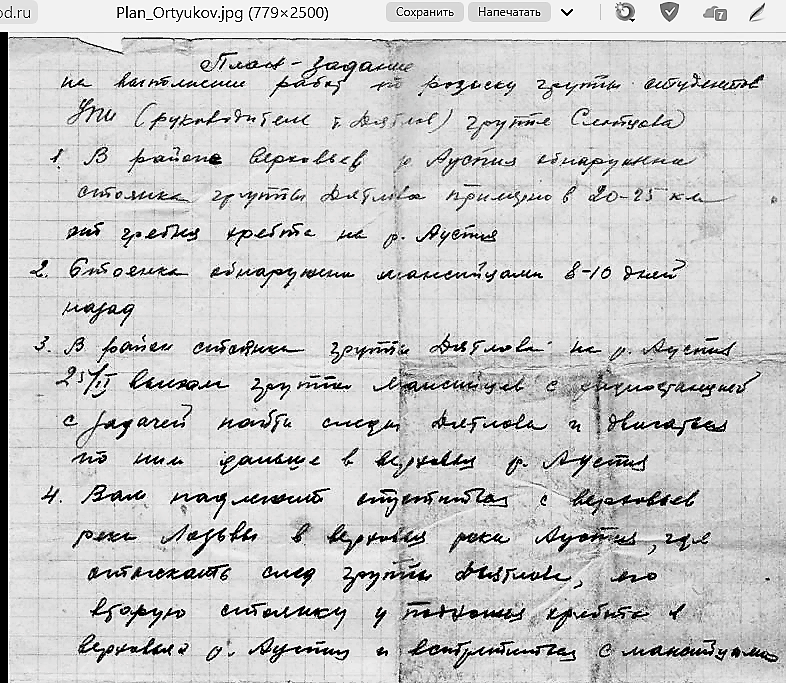 od.ru
Plan_Ortyukov.jpg (779×2500)
Сохранить
Напечатать
7
План-задание
на выполнение работ по розыску группы студентов
УПИ (руководителе т. Дятлов) группе Слепцова
1. В районе верховьев р Ауспия обнаружена
стоянка группы Дятлова примерно в 20-25 км
от гребня хребта на р. Ауспия
2. Стоянка обнаружена мансийцами 8-10 дней
назад
3. В район стоянки группы Дятлова на р. Ауспия
25/II выехали группа Мансийцев с радиостанцией
с задачей найти следы Дятлова и двигаться
по ним дальше в верховья р. Ауспия
4. Вам надлежит спуститься с верховьев
реки Лозьвы в верховья реки Ауспия, где
отыскать след группы Дятлова, его
вторую стоянку у подножия хребта в
верховья р. Ауспия и встретиться с мансийцами